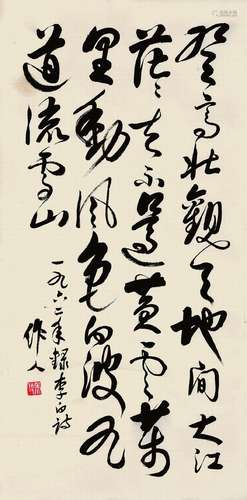 登高壮觀天地間大江
茫茫去不還黄雲萬
里動風色白波九
道流雪山
一九六二年錄李白詩
作人